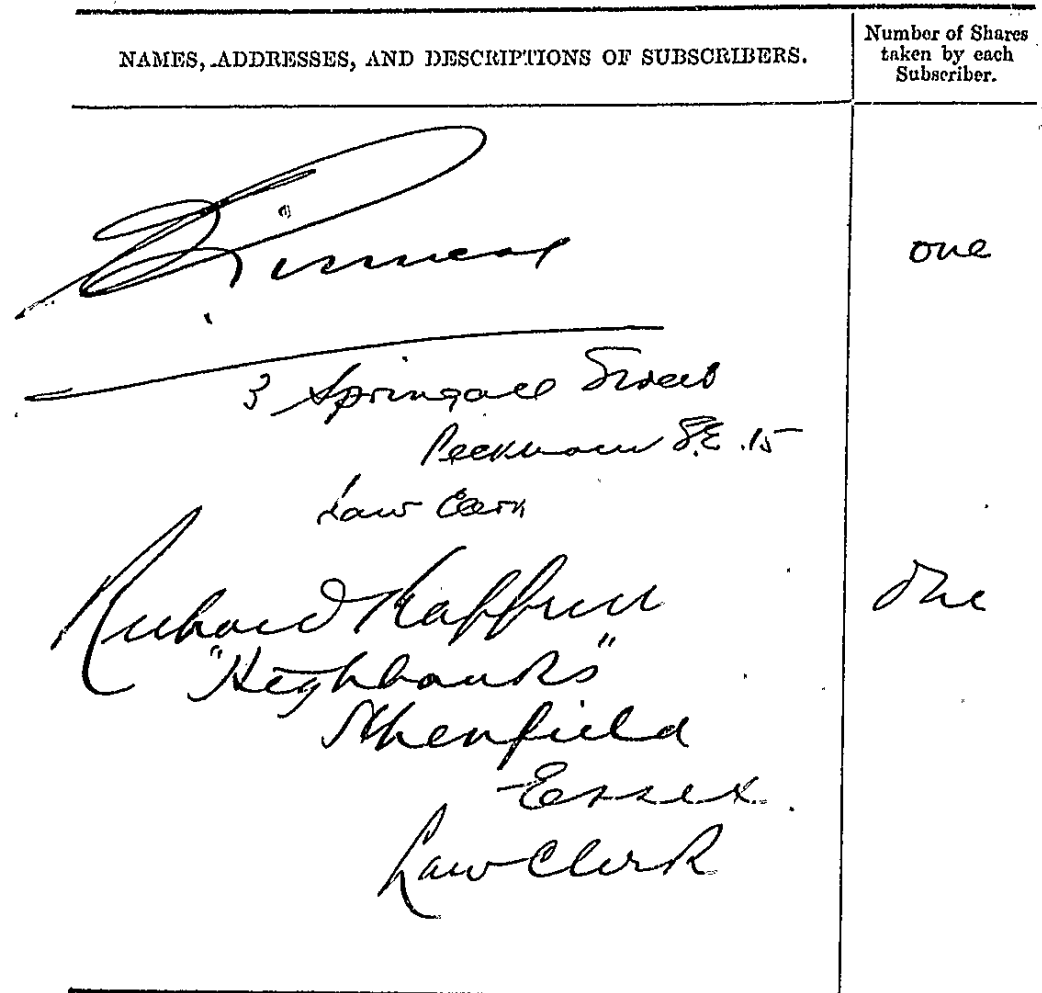 NAMES, ADDRESSES, AND DESCRIPTIONS OF SUBSCRIBERS.
Number of Shares
taken by each
Subscriber.
one
3 Springall Street
Peckham S.E.15
Law Clerk
Richard
one
"Highbanks"
Shenfield
Essex.
Law Clerk